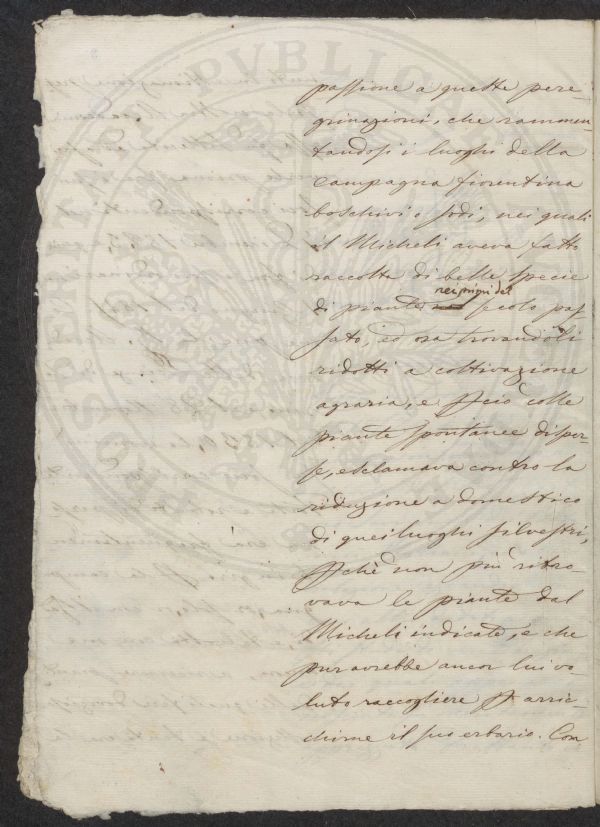 passione a queste pere-
grinazioni, che rammen-
tandosi i luoghi della
campagna fiorentina
boschivi o sodi, nei quali
il Micheli aveva fatto
raccolta di belle specie
nei primi del
di piante secolo pas
sato, ed ora trovandoli
ridotti a coltivazione
agraria, e pciò colle
piante spontanee disper-
se, esclamava contro la
riduzione a domestico
di quei luoghi silvestri,
pchè non più ritro-
vava le piante dal
Micheli indicate, e che
pur avrebbe ancor lui vo-
luto raccogliere p arric-
chirne il suo erbario. Con